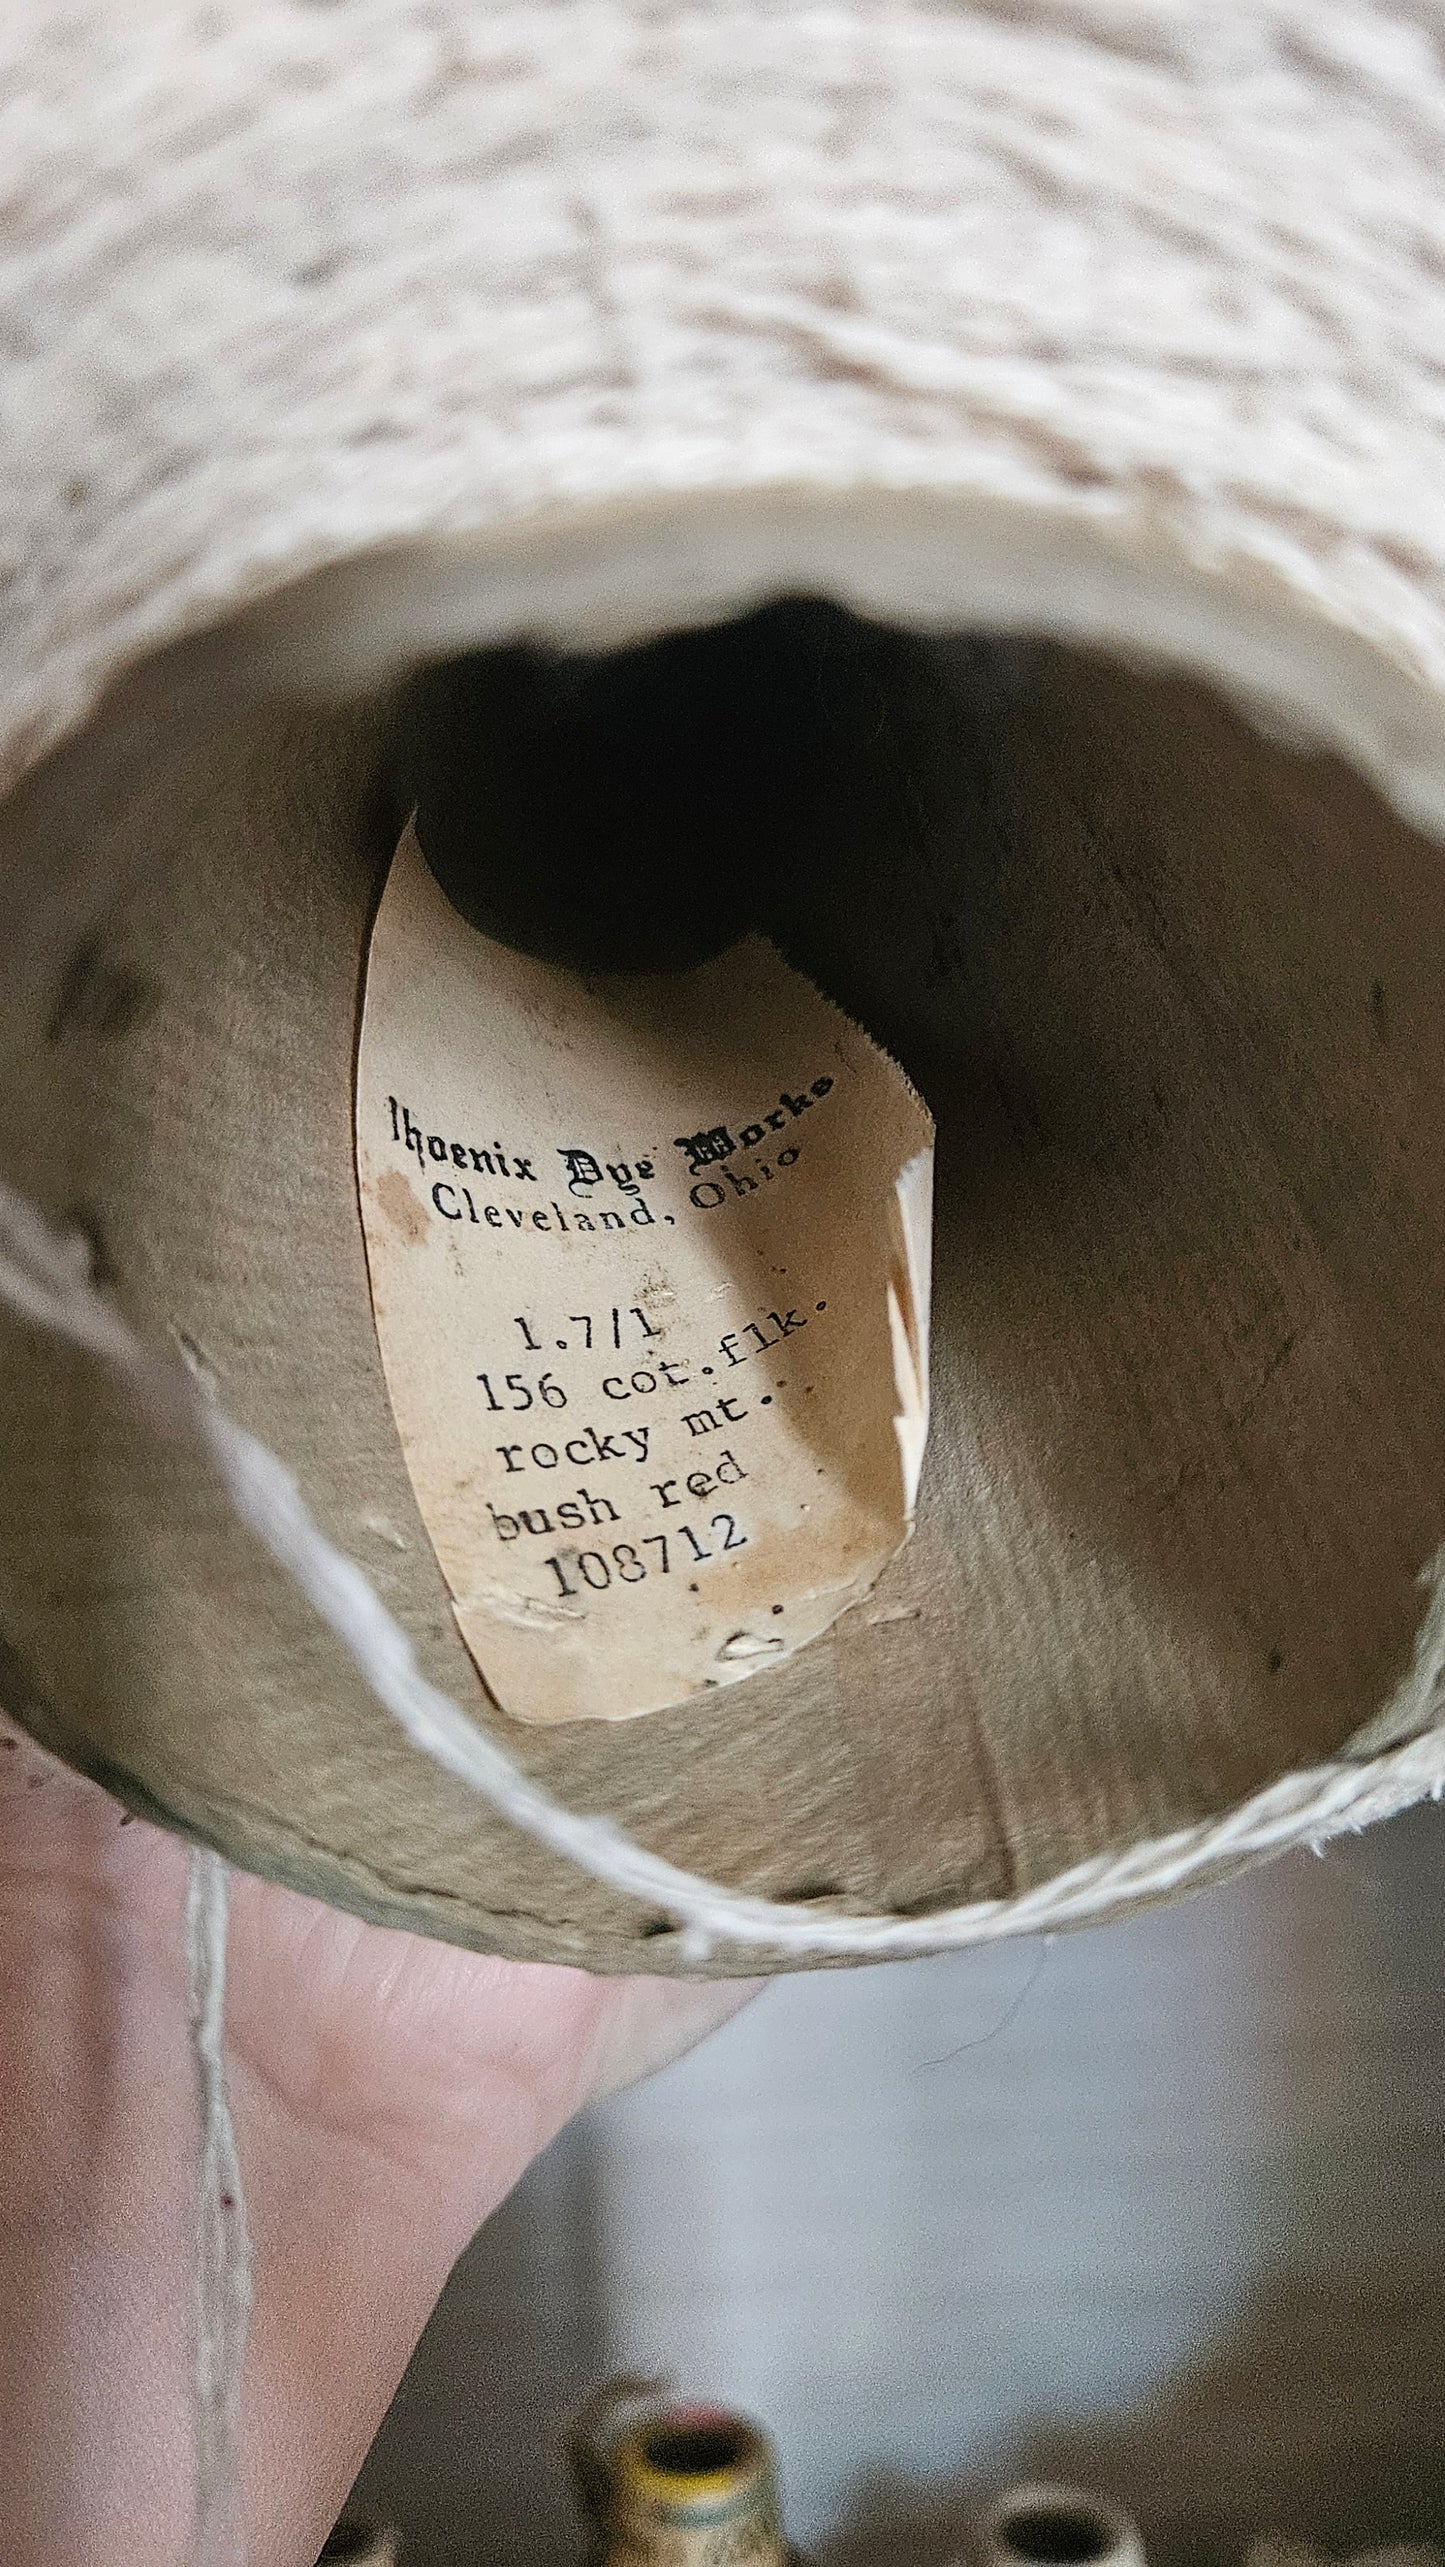 Phoenix Dye Works
Cleveland, Ohio
1.7/1
156 cot.flk.
rocky mt.
bush red
108712